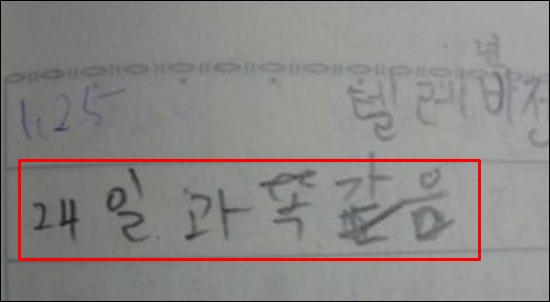 1.25 텔레비전
24일과 똑같음